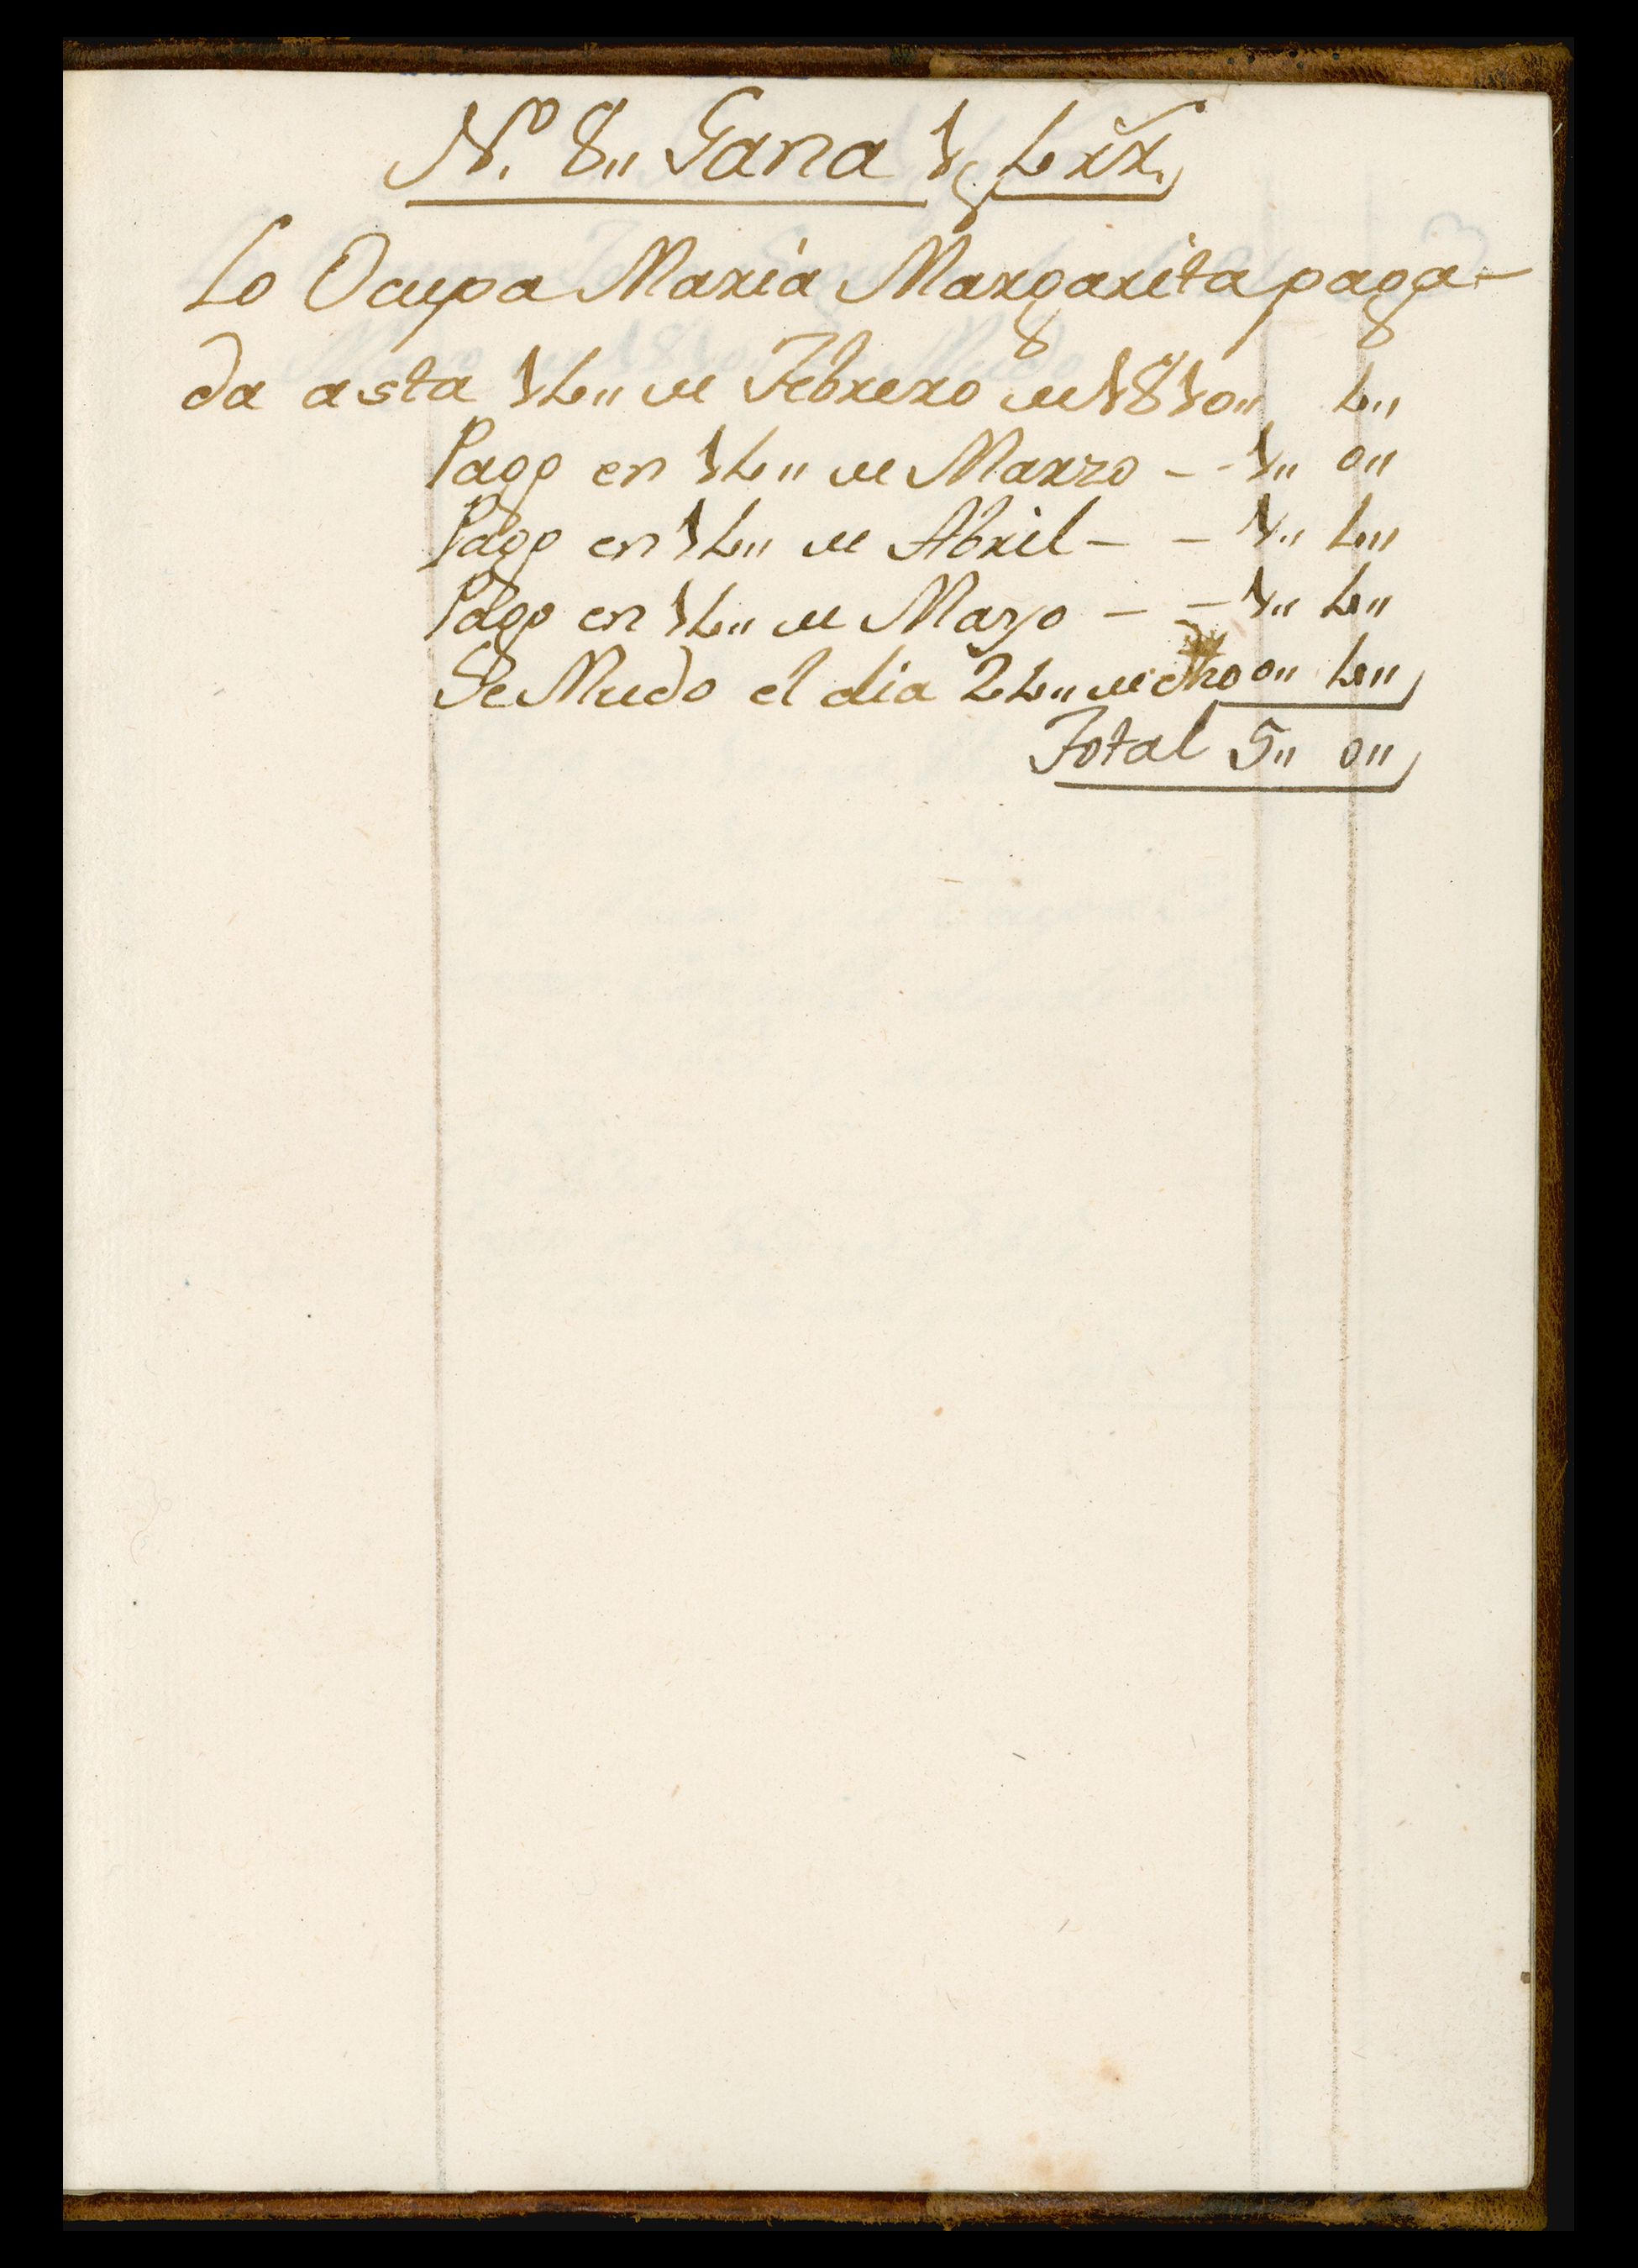 N.º 8,, Gana 1p 4 rr.
Lo Ocupa Maria Margarita paga-
da asta 14,, de Febrero de 1810,, 4,,
Pago en 14,, de Marzo - - 1,, 0,,
Pago en 14,, de Abril - - 1,, 4,,
Pago en 14,, de Mayo - - 1,, 4,,
Se Mudo el dia 24,, de dho 0,, 4,,
Total 5,, 0,,